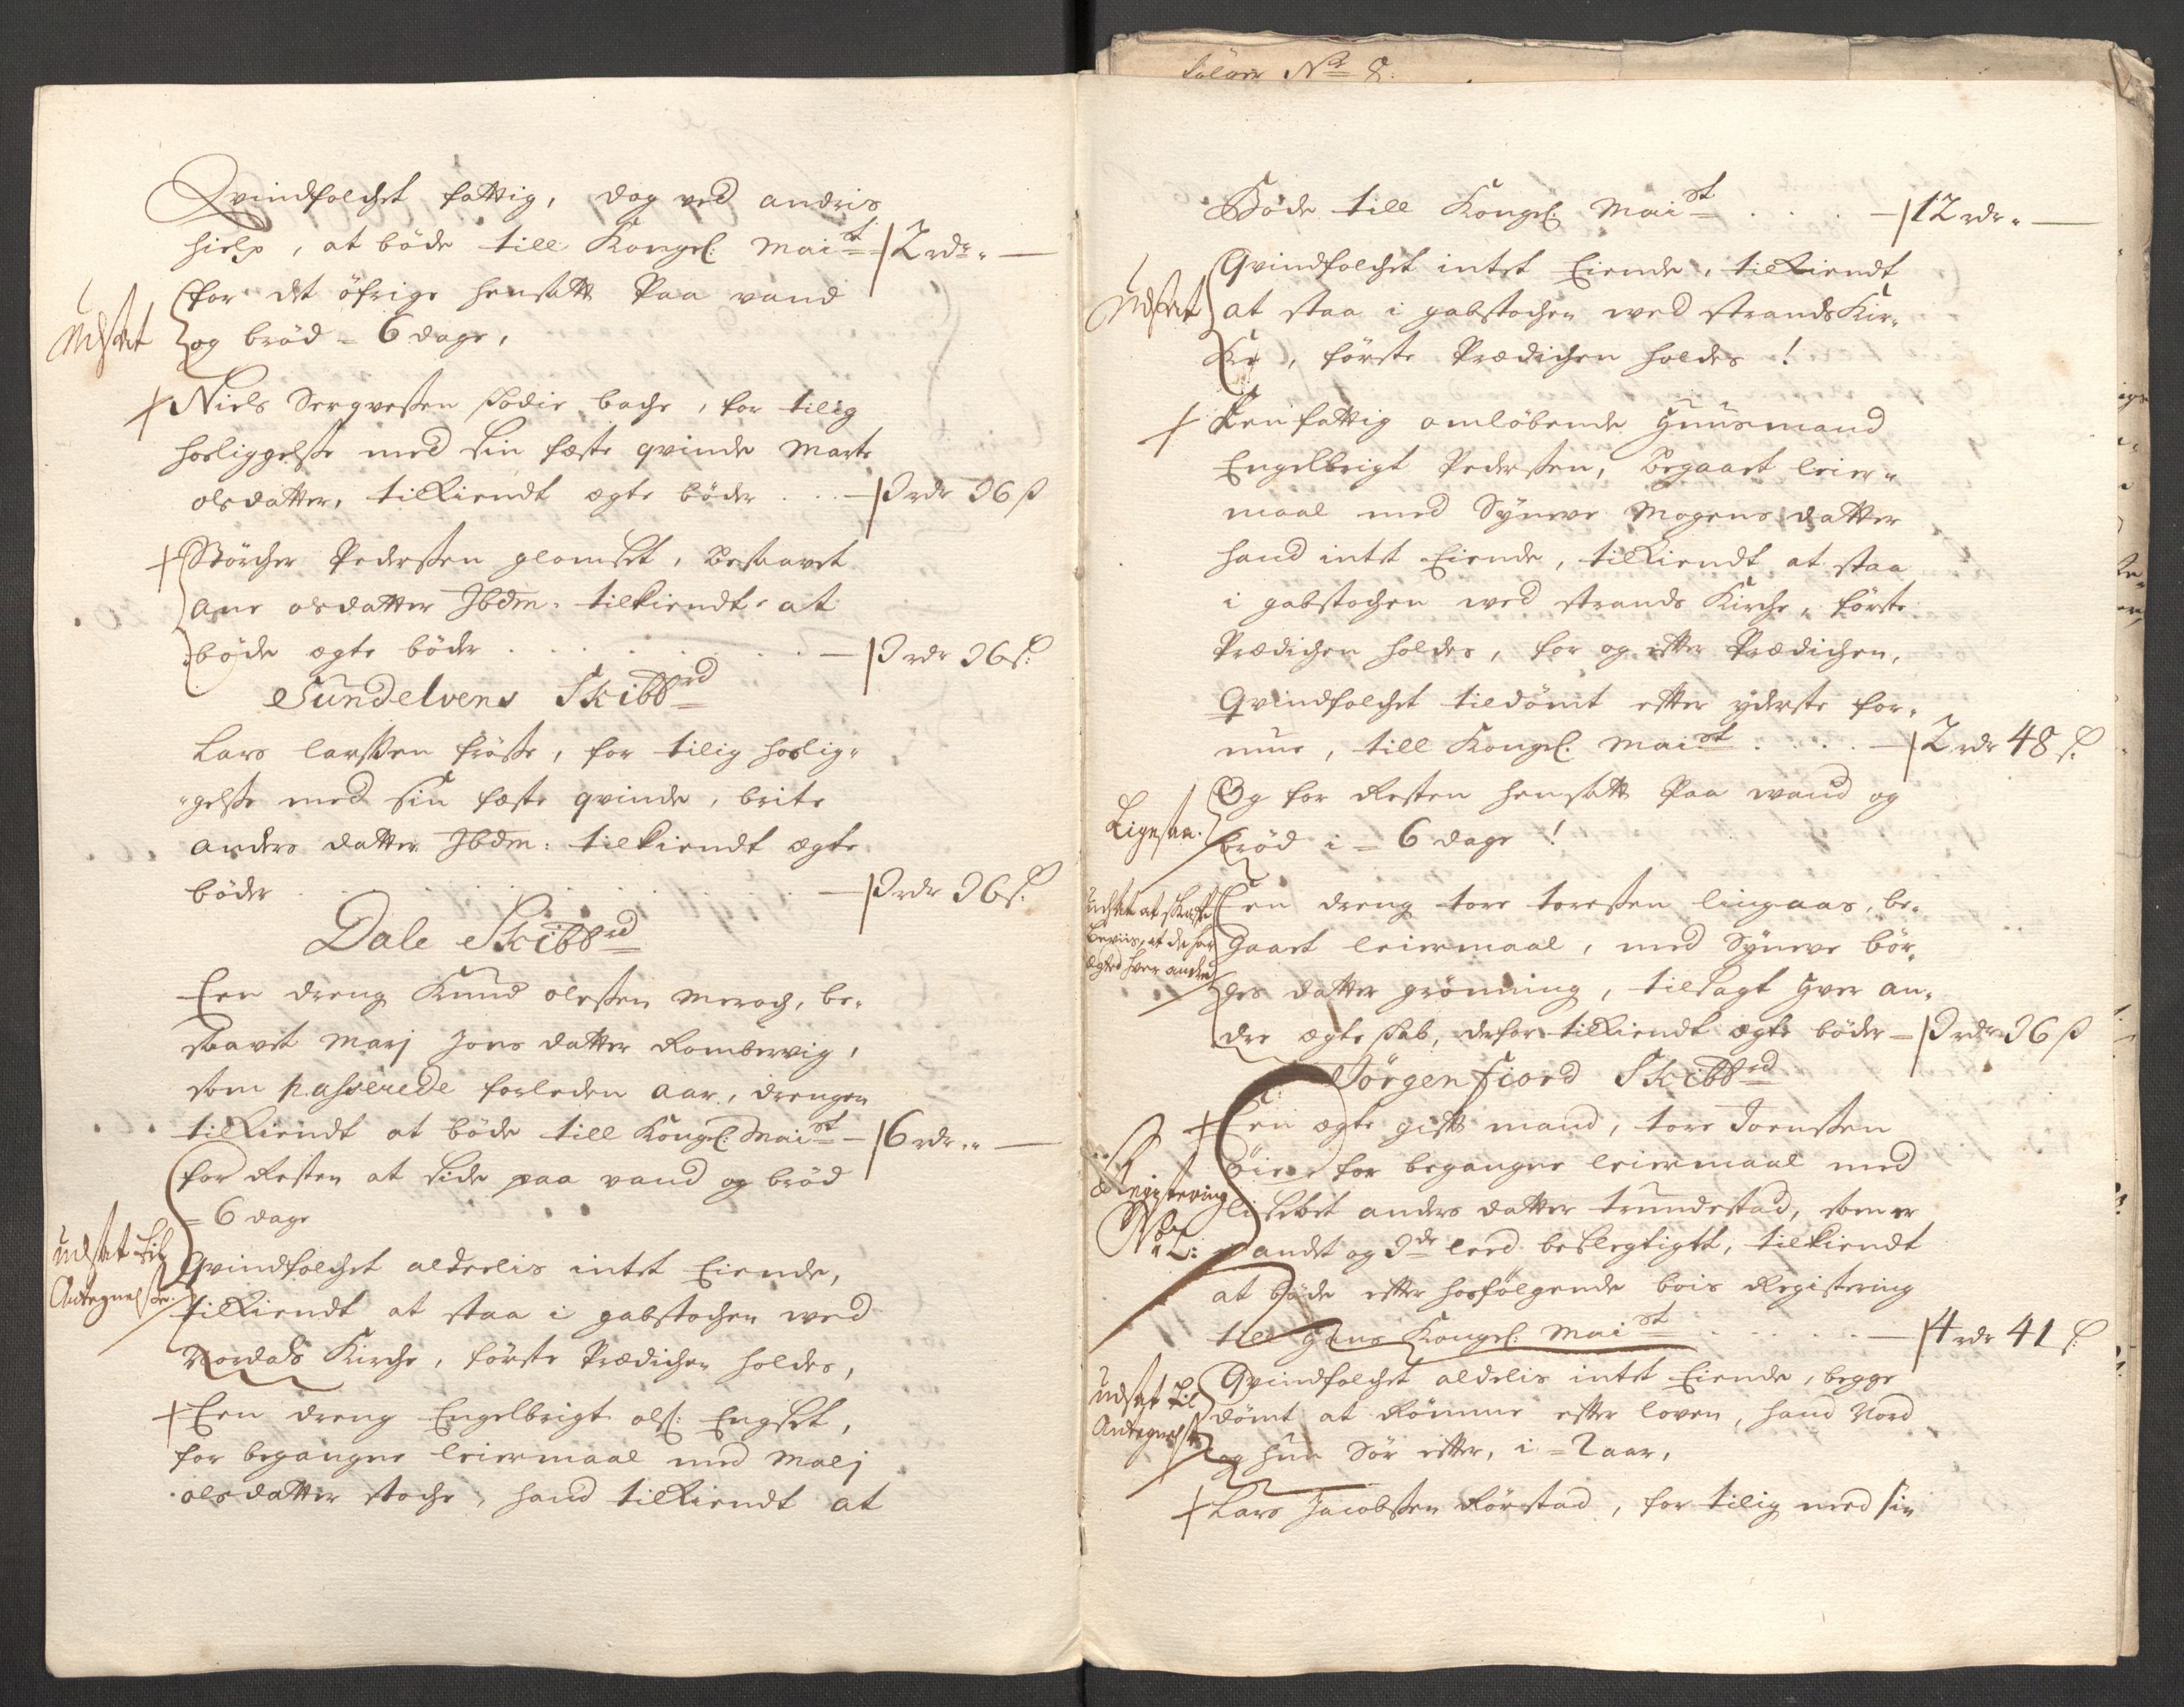 Qvindfolchet fattig, dog ved andris
hielp, at böde till Kongel: Maist 2 rdr "
for det öfrige hensatt Paa vand
Udsat
og bröd = 6 dage,
Niels Sergvessen bache, for tilig
hosliggelsse med sin fæste qvinde Marte
olsdatter, tilkiendt ægte böder 3 rdr 36 ß
Börcher Pedersen glomset, besaaret
Ane olsdatter Ibdm: tilkiendt at
böde ægte böder 3 rdr 36 ß:
Sundelvens Skibbrd
Lars larssen frösse, for tilig hoslig-
gelsse med sin fæste qvinde, brite
anders datter Ibdm: tilkiendt ægte
böder 3 rdr 36 ß:
Dale Skibbrd
Een dreng Knud olessen Meroch, be-
saaret Marj Jons datter
som passerede forleden aar, drengen
tilkiendt at böde till Kongel: Maist 6 rdr "
for Resten at side paa vand og bröd
= 6 dage
udsat til
Qvindfolchet alderlis intet Eiende,
Antegnelsse.
tilkiendt at staa i gabstochen wed
Nordals Kirche, förste Prædichen holdes,
Een dreng Engelbrigt ols: Engset,
for begangne leiermaal med Malj
olsdatter stoche, hand tilkiendt at
fölger No 8:
Böde till Kongel: Maist 12 rdr "
Qvindfolchet intet Eiende, tilkiendt
Udsat
at staa i gabstochen wed Strands Kir-
Ke, förste Prædichen holdes!
Een fattig omlöbende Huusmand
Engelbrigt Pedersen, begaaet leier-
maal med Synneve Mogens datter
hand intet Eiende, tilkiendt at staa
i gabstochen wed Strands Kirche, förste
Prædichen holdes, for og efter Prædichen,
Qvindfolchet tildömt efter yderste for-
mue, till Kongel. Maist 2 rdr 48 ß.
Og for Resten hensatt Paa wand og
Ligesaa.
bröd i = 6 dage!
udsat at skaffe
Een dreng tore toressen lingaas, be-
beviis, at de har
gaaet leiermaal, med Synneve bör-
ægted hver andre
ges datter grönning, tilsagt Hver an-
dre ægteskab, derfor tilkiendt ægte böder 3 rdr 36 ß
Jörgenfiord Skibbrd
Een ægte gift mand, tore Joenssen
öie for begangne leiermaal med
Registering
lisebet anders datter trundestad, som er
No 2:
andet og 3de leed beslegtigtt, tilkiendt
at böde efter hosfölgende bois Registering
till Hans Kongel: Maist 4 rdr 41 ß:
udsat til
Qvindfolchet aldelis intet Eiende, begge
Antegnelse
dömt at Römme efter loven, hand Nord
og hun Sör efter, i = 2 aar,
Lars Jacobssen Rörstad, for tilig med sin